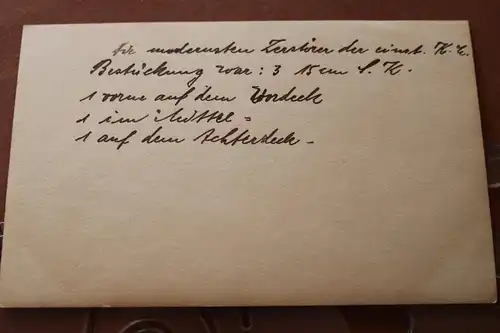 Die modernsten Zerstörer der einst. K. M.
Bestückung war: 3 15 cm S. K.
1 vorne auf dem Vordeck
1 im Mittel =
1 auf dem Achterdeck -